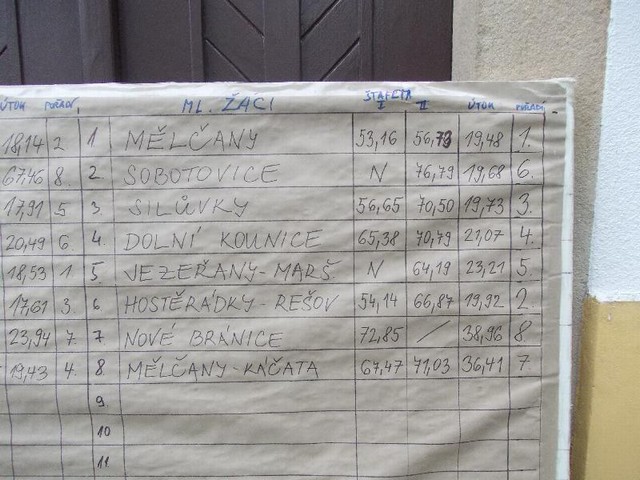 ÚTOK POŘADÍ ML. ŽÁCI ŠTAFETA I II ÚTOK POŘADÍ
18,14 2 1 MĚLČANY 53,16 56,73 19,48 1.
67,46 8. 2. SOBOTOVICE N 76,79 19,68 6.
17,91 5 3. SILŮVKY 56,65 70,50 19,73 3.
20,49 6. 4. DOLNÍ KOUNICE 65,38 70,79 21,07 4.
18,53 1. 5. JEZEŘANY-MARŠ N 64,19 23,21 5.
17,61 3. 6 HOSTĚRÁDKY-REŠOV 54,14 66,87 19,92 2.
23,94 7. 7 NOVÉ BRÁNICE 72,85 / 38,96 8.
19,43 4. 8 MĚLČANY-KÁČATA 67,47 71,03 36,41 7.
9
10
11